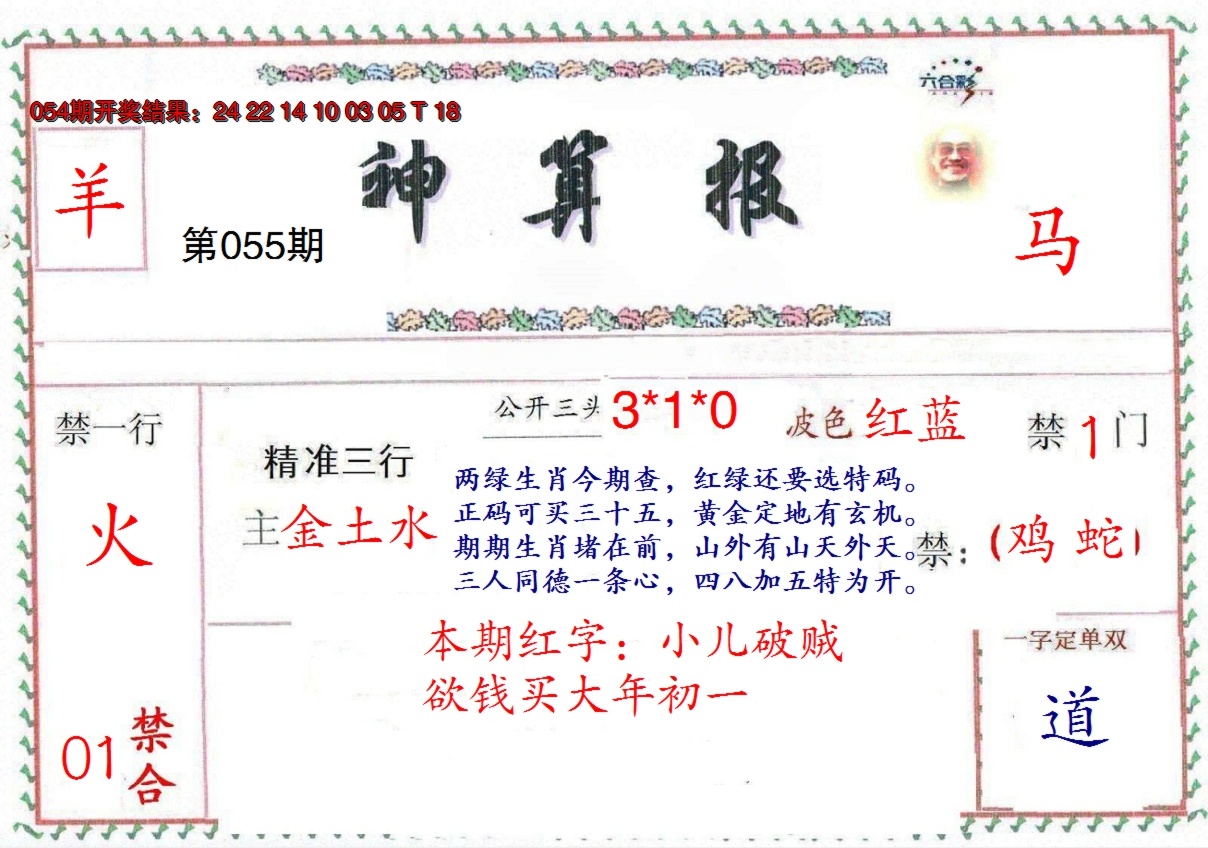 六合彩
054期开奖结果：24 22 14 10 03 05 T 18
羊
神算报
第055期
马
禁一行
火
01
禁合
精准三行
主金土水
公开三头 3*1*0
波色 红蓝
禁1门
两绿生肖今期查，红绿还要选特码。
正码可买三十五，黄金定地有玄机。
期期生肖堵在前，山外有山天外天。
三人同德一条心，四八加五特为开。
禁：(鸡 蛇)
本期红字：小儿破贼
欲钱买大年初一
一字定单双
道